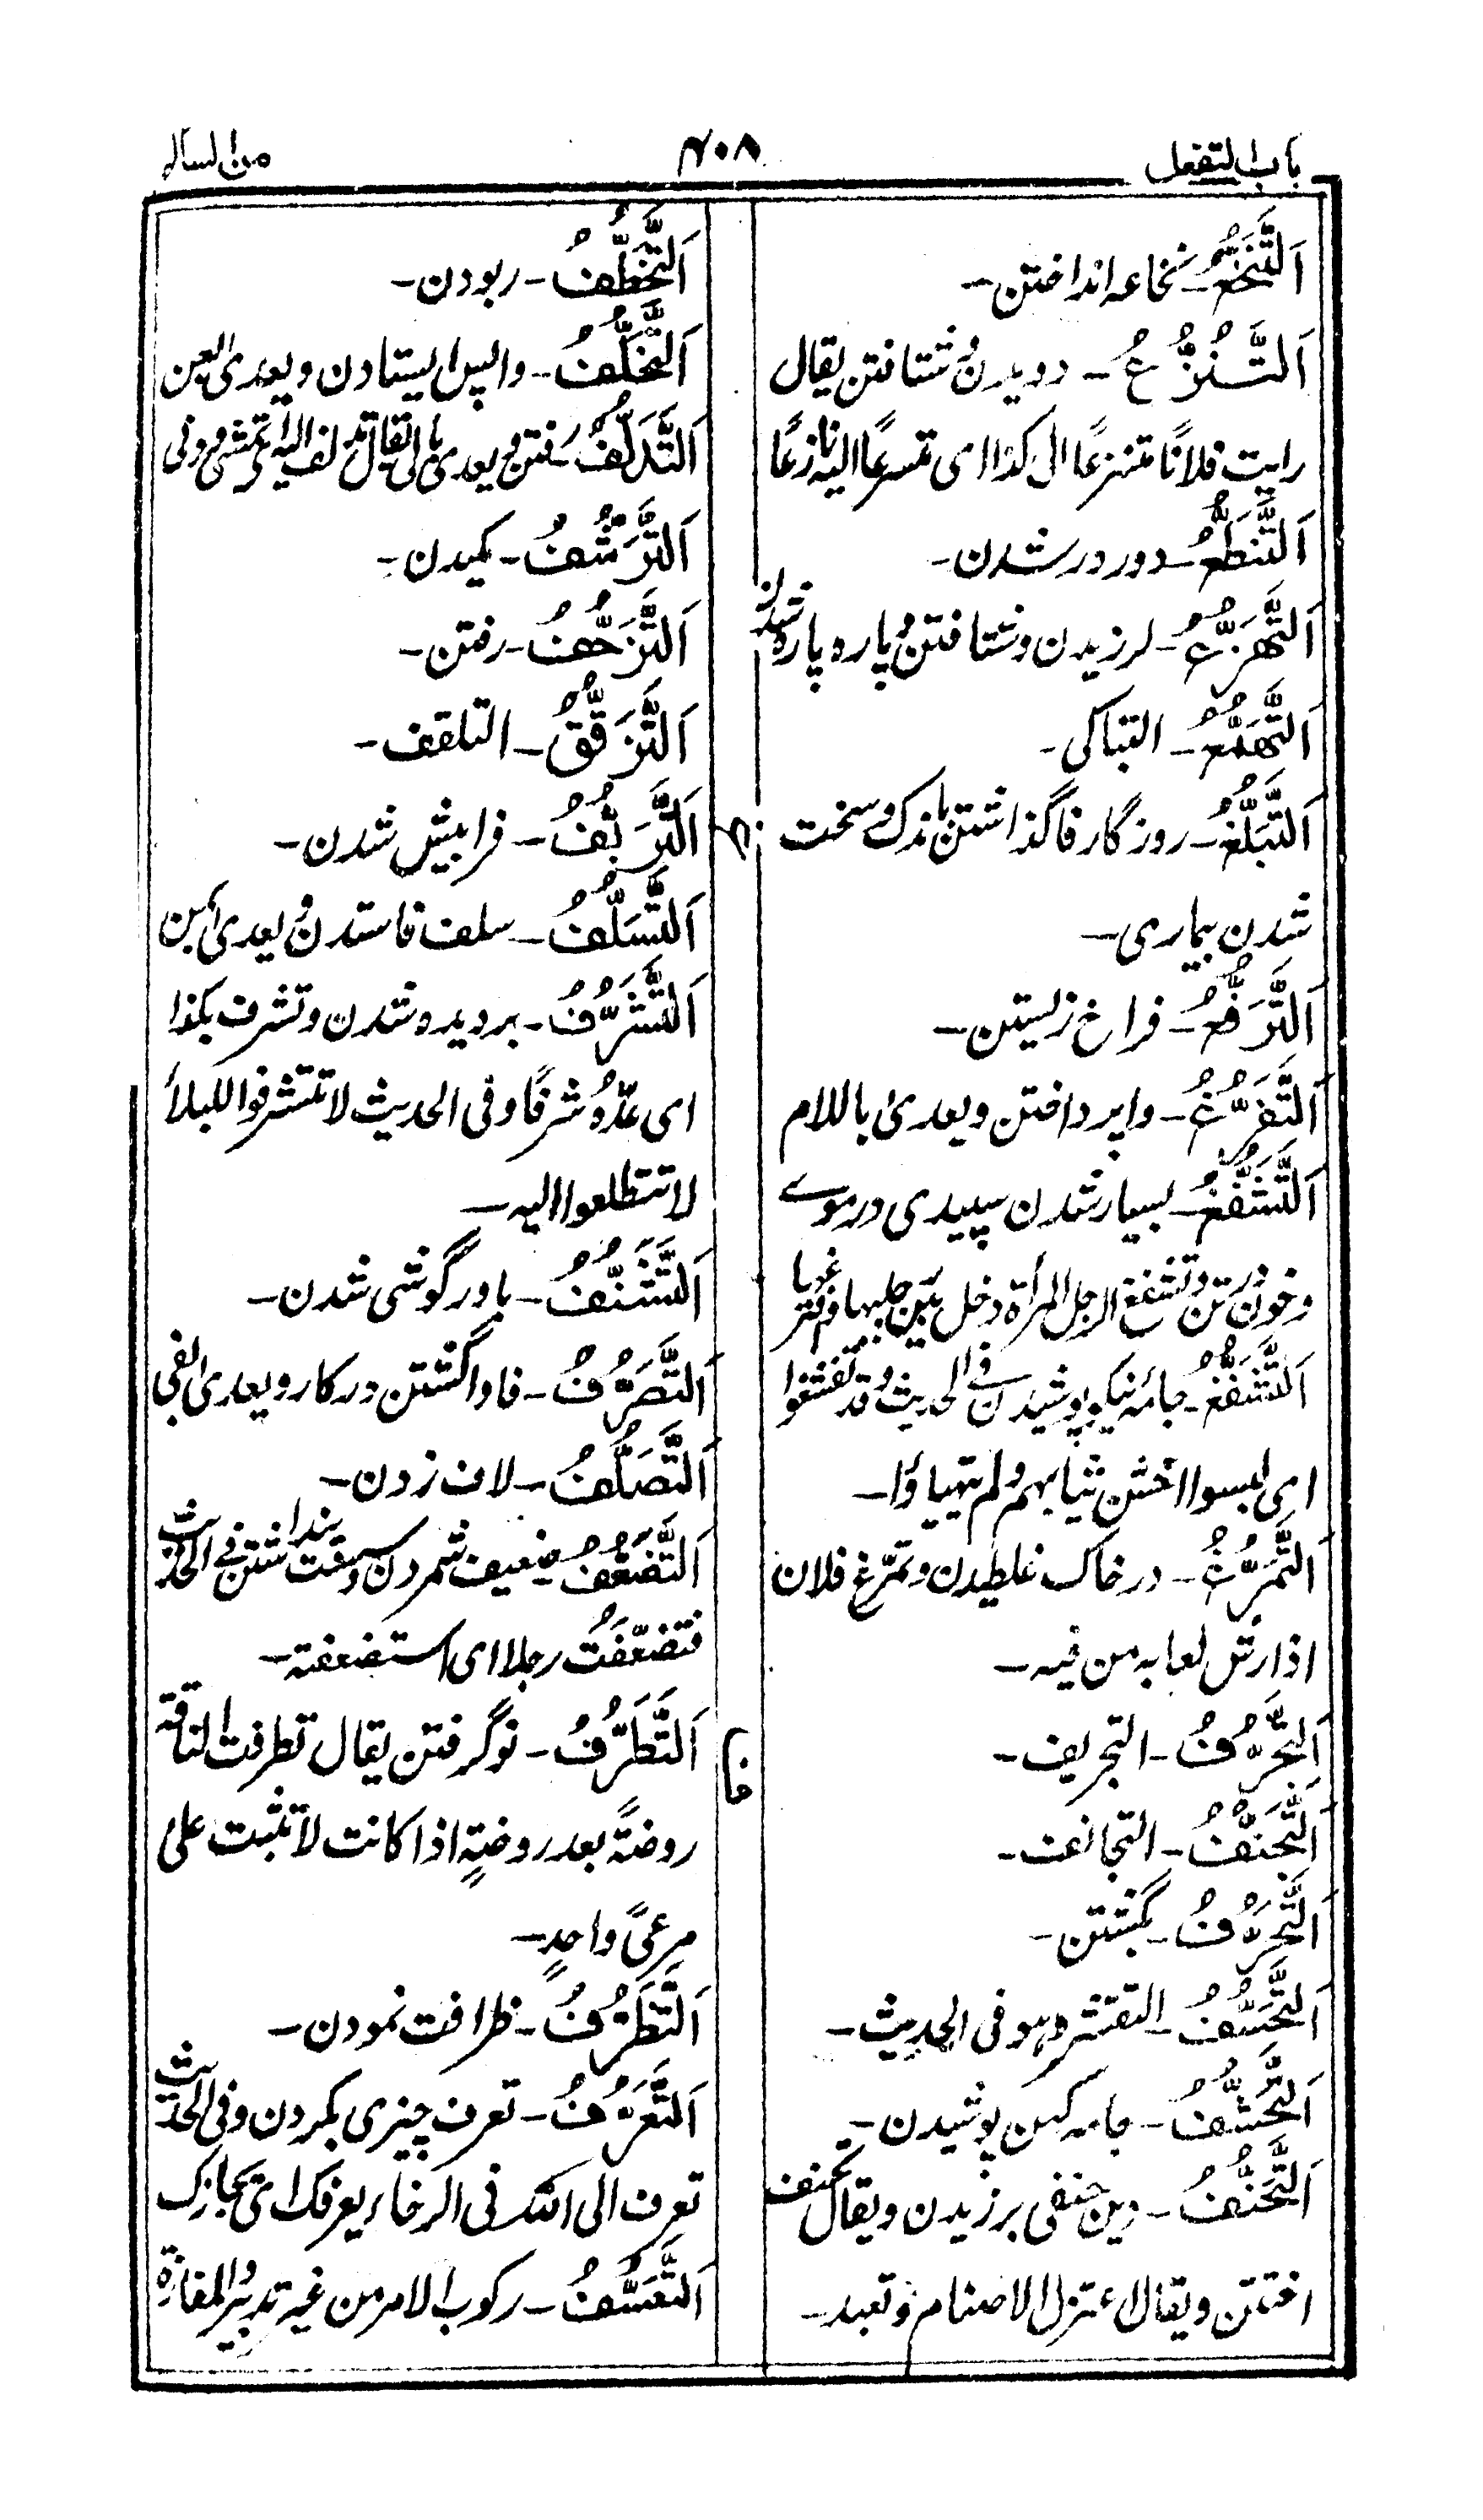 باب التفعل
۴۰۸
من السالم
اَلتَّنَخُّعُ ـ نخاعه انداختن ـ
اَلتَّنَزُّعُ ـ دویدن و شتافتن یقال
رایت فلانًا متنزعًا الی کذا ای متسرعًا الیه نازعًا
اَلتَّنَطُّعُ ـ دور در شدن ـ
اَلتَّهَزُّعُ ـ لرزیدن و شتافتن و پاره پاره شدن
اَلتَّهَمُّعُ ـ التباکی ـ
اَلتَّبَلُّغُ ـ روزگار فاگذاشتن باندک و سخت
شدن بیماری ـ
اَلتَّرَفُّغُ ـ فراخ زیستن ـ
اَلتَّفَرُّغُ ـ واپرداختن و یعدیٰ باللام
اَلتَّشَفُّغُ ـ بسیار شدن سپیدی در موے
و خون در تن و تفشغ الرجل المرأة دخل بین رجلیها
اَلتَّفَشُّغُ ـ جامۀ نیکو پوشیدن فی الحدیث و قد تفشغوا
ای لبسوا اخشن ثیابهم و لم یتهیاؤا ـ
اَلتَّمَرُّغُ ـ در خاک غلطیدن و تمرّغ فلان
اذا رش لعابه من فیه ـ
اَلتَّجَرُّفُ ـ التجریف ـ
اَلتَّجَنُّفُ ـ التجانف ـ
اَلتَّحَرُّفُ ـ بگشتن ـ
اَلتَّحَسُّفُ ـ التقشر و هو فی الحدیث ـ
اَلتَّخَشُّفُ ـ جامه کهن پوشیدن ـ
اَلتَّحَنُّفُ ـ دین حنفی برزیدن و یقال تحنف
اختتن و یقال اعتزل الاصنام و تعبد ـ
اَلتَّخَطُّفُ ـ ربودن ـ
اَلتَّخَلُّفُ ـ واپس ایستادن و یعدی بعن
اَلتَّدَلُّفُ ـ رفتن و یعدی بالی یقال تدلف الیه ای تمشی و دنی
اَلتَّرَشُّفُ ـ مکیدن ـ
اَلتَّزَحُّفُ ـ رفتن ـ
اَلتَّزَقُّفُ ـ التلقف ـ
اَلتَّزَلُّفُ ـ فراپیش شدن ـ
اَلتَّسَلُّفُ ـ سلف فاستدن و یعدی بمن
اَلتَّشَرُّفُ ـ بر دیده شدن و تشرف بکذا
ای عدّهُ شرفًا و فی الحدیث لا تتشرفوا للبلاء
لا تتطلعوا الیه ـ
اَلتَّشَنُّفُ ـ با ورگوشی شدن ـ
اَلتَّصَرُّفُ ـ فا واگشتن در کار و یعدی بفی
اَلتَّصَلُّفُ ـ لاف زدن ـ
اَلتَّضَعُّفُ ـ ضعیف شمردن و سست پنداشتن فی الحدیث
فتضعّفتُ رجلا ای استضعفته ـ
اَلتَّطَرُّفُ ـ نو گرفتن یقال تطرفت الناقة
روضةً بعد روضةٍ اذا کانت لا تثبت علی
مرعیً واحدٍ ـ
اَلتَّظَرُّفُ ـ ظرافت نمودن ـ
اَلتَّعَرُّفُ ـ تعرف چیزی بکردن و فی الحدیث
تعرف الی الله فی الرخاء یعرفک ای یجازک
اَلتَّعَسُّفُ ـ رکوب الامر من غیر تدبیر و المفازة